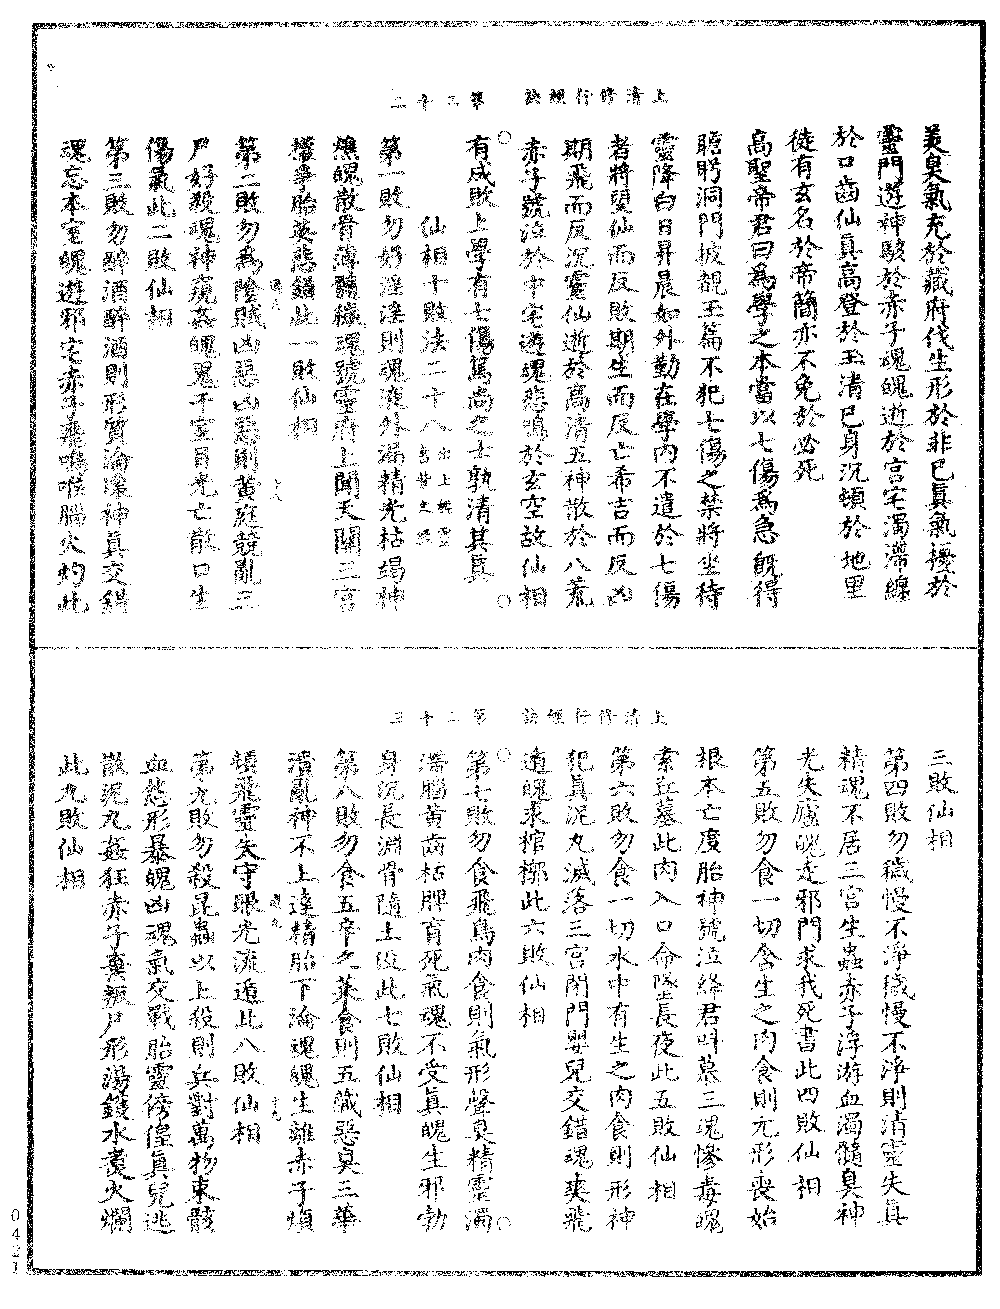 上清修行經訣　第二十二
羙臭氣充於藏府伐生形於非已真氣擾於
靈門遊神駭於赤子魂魄逝於宮宅濁滯纏
於口齒仙真高登於玉清已身沉頓於地里
徒有玄名於帝簡亦不免於必死
高聖帝君曰為學之本當以七傷為急既得
瞻眄洞門披覩玉篇不犯七傷之禁將坐待
靈降白日昇晨如外勤在學內不遣於七傷
者將望仙而反敗期生而反亡希吉而反凶
期飛而反沉靈仙逝於高清五神散於八荒
赤子號泣於中宅遊魂悲鳴於玄空故仙相
有成敗上學有七傷篤尚之士孰清其真
仙相十敗法二十八
第一敗勿好淫淫則魂液外漏精光枯竭神
燋魄散骨薄髓穢魂號靈府上聞天關三宮
櫂爭胎嬰悲錯此一敗仙相
第二敗勿為陰賊凶惡凶惡則黃庭競亂三
尸好殺魂神窺姦魄鬼干室目光亡散口生
傷氣此二敗仙相
第三敗勿醉酒醉酒則形質淪壞神真交錯
魂忘本室魄遊邪宅赤子飛喚喉腦火灼此
上清修行經訣　第二十三
三敗仙相
第四敗勿穢慢不淨穢慢不淨則清靈失真
精魂不居三宮生蟲赤子浮游血濁髓臭神
光失廬魄走邪門求我死書此四敗仙相
第五敗勿食一切含生之肉食則元形喪始
根本亡度胎神號泣絳君叫慕三魂慘毒魄
索丘墓此肉入口命墜長夜此五敗仙相
第六敗勿食一切水中有生之肉食則形神
犯真泥丸滅落三宮閉門嬰兒交錯魂爽飛
逝魄求棺槨此六敗仙相
第七敗勿食飛鳥肉食則氣形聲臭精靈濁
滯腦黃齒枯脾育死氣魂不受真魄生邪勃
身沉長淵骨隨土役此七敗仙相
第八敗勿食五辛之菜食則五藏惡臭三華
潰亂神不上達精胎下淪魂魄生離赤子煩
頓飛靈失守眼光流遁此八敗仙相
第九敗勿殺昆蟲以上殺則兵對萬物東骸
血愁形暴魄凶魂氣交戰胎靈傍偟真兒逃
散泥丸姦狂赤子奧振尸形湯鑊水煑火爛
此九敗仙相
0421